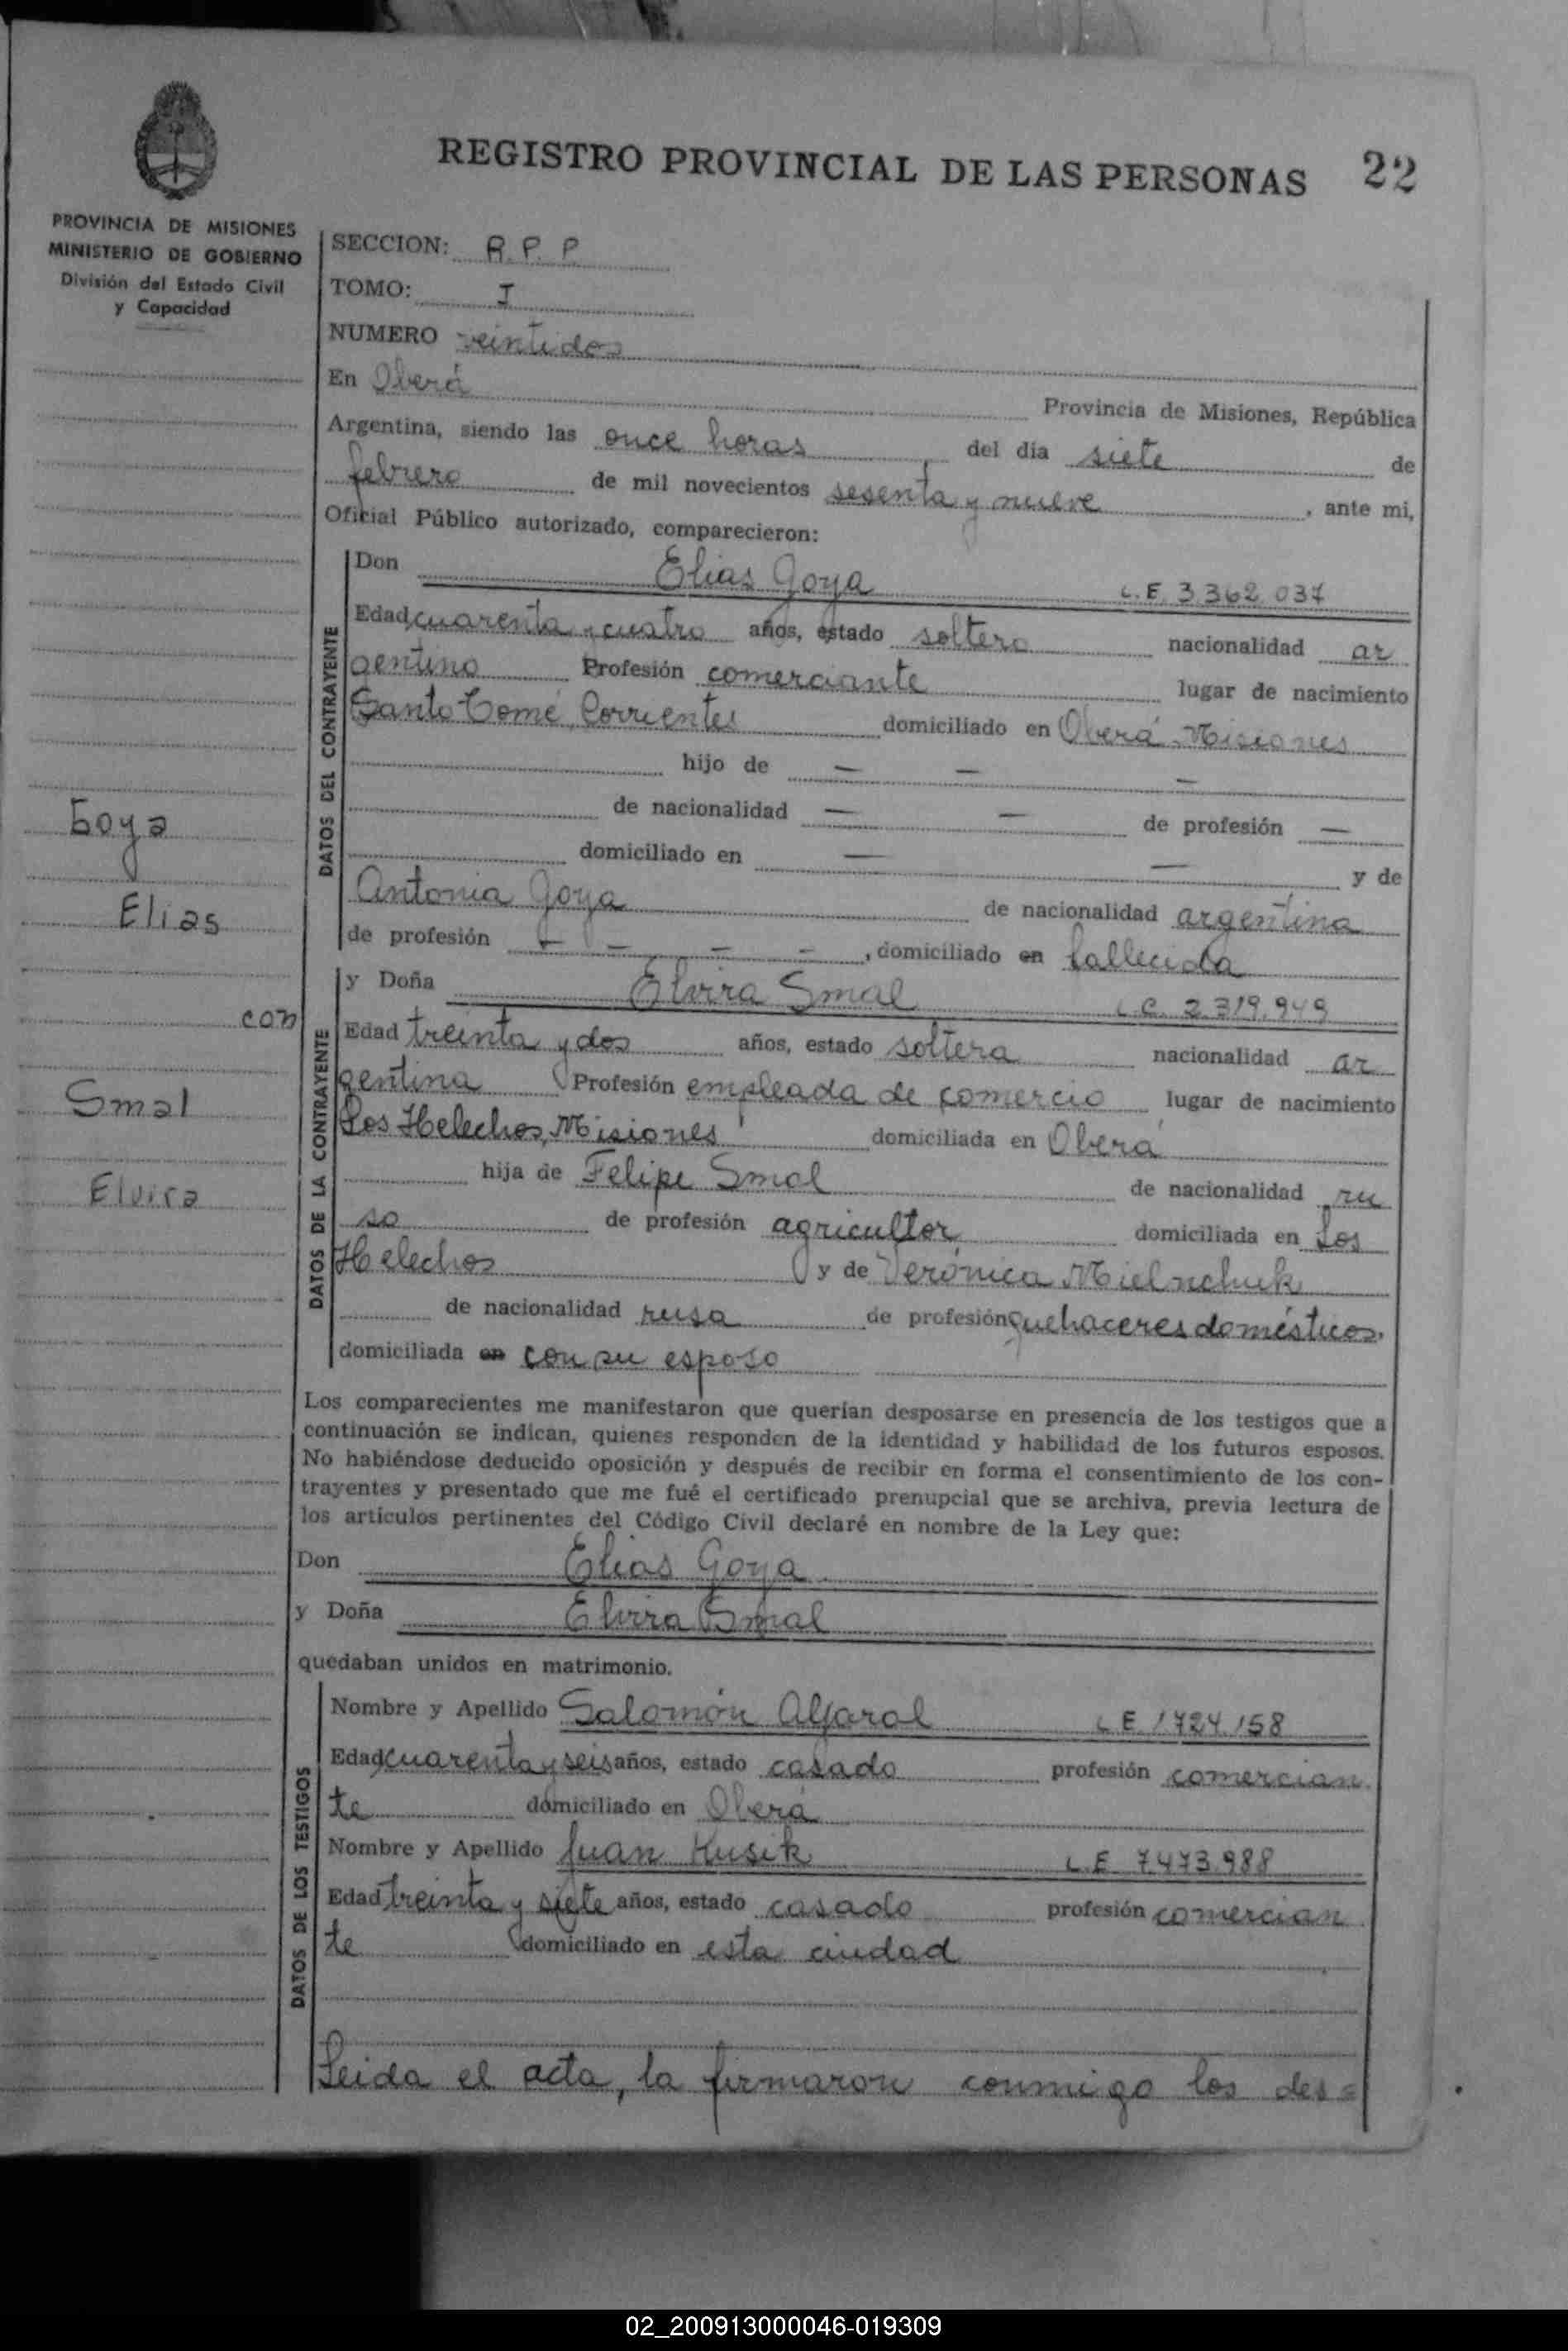 REGISTRO PROVINCIAL DE LAS PERSONAS 22
PROVINCIA DE MISIONES
MINISTERIO DE GOBIERNO
División del Estado Civil
y Capacidad
Goya
Elias
con
Smal
Elvira
SECCION: R. P. P.
TOMO: I
NUMERO veintidos
En Oberá Provincia de Misiones, República
Argentina, siendo las once horas, del día siete de
febrero de mil novecientos sesenta y nueve, ante mi,
Oficial Público autorizado, comparecieron:
DATOS DEL CONTRAYENTE
Don Elias Goya L.E. 3.362.037
Edad cuarenta y cuatro años, estado soltero nacionalidad ar
gentino Profesión comerciante lugar de nacimiento
Santo Tomé, Corrientes domiciliado en Oberá Misiones
hijo de — — —
de nacionalidad — — de profesión —
domiciliado en — — y de
Antonia Goya de nacionalidad argentina
de profesión — — — —, domiciliado en fallecida
DATOS DE LA CONTRAYENTE
y Doña Elvira Smal L.C. 2.319.949
Edad treinta y dos años, estado soltera nacionalidad ar
gentina Profesión empleada de comercio lugar de nacimiento
Los Helechos, Misiones domiciliada en Oberá
hija de Felipe Smal de nacionalidad ru
so de profesión agricultor domiciliada en Los
Helechos y de Verónica Mielnchuk
de nacionalidad rusa de profesión quehaceres domésticos,
domiciliada en con su esposo
Los comparecientes me manifestarón que querían desposarse en presencia de los testigos que a
continuación se indican, quienes responden de la identidad y habilidad de los futuros esposos.
No habiéndose deducido oposición y después de recibir en forma el consentimiento de los con-
trayentes y presentado que me fué el certificado prenupcial que se archiva, previa lectura de
los artículos pertinentes del Código Civil declaré en nombre de la Ley que:
Don Elias Goya
y Doña Elvira Smal
quedaban unidos en matrimonio.
DATOS DE LOS TESTIGOS
Nombre y Apellido Salomón L.E. 1724.158
Edad cuarenta y seis años, estado casado profesión comercian
te domiciliado en Oberá
Nombre y Apellido Juan Kusik L.E. 7.473.988
Edad treinta y siete años, estado casado profesión comercian
te domiciliado en esta ciudad
Leida el acta, la firmaron conmigo los des=
02_200913000046-019309